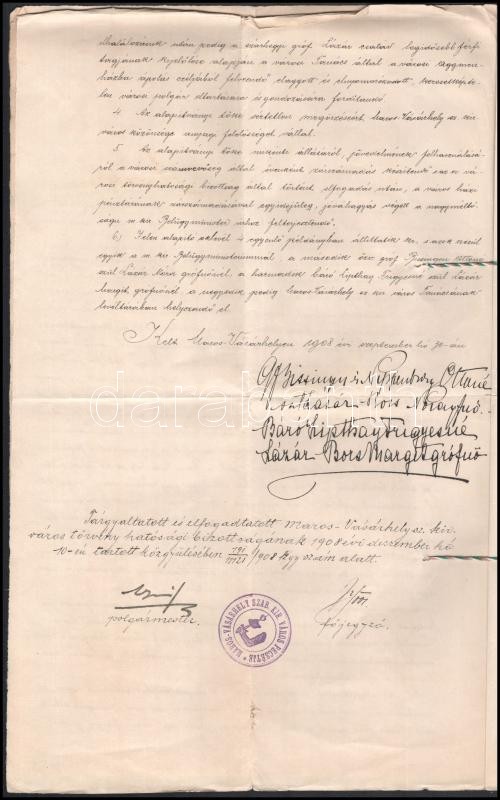 halálozásuk után pedig a szárhegyi gróf Lázár család legidősebb férfi
tagjának kijelölése alapján a városi Tanács által a városi aggmen-
házba ápolás czéljából felveendő elaggott és elnyomorodott, keresetképte-
len városi polgár eltartására és gondozására fordítandó.
4. Az alapítványi tőke sértetlen megőrzéséért Maros-Vásárhely sz. kir.
város közönsége anyagi felelősséget vállal.
5. Az alapítványi tőke mikénti állásáról, jövedelmének felhasználásá-
ról a városi számvevőség által évenként zárszámadás készítendő s az a
városi törvényhatósági bizottság által történt elfogadás után, a város házi
pénztárának zárszámadásával egyidejűleg, jóváhagyás végett a nagyméltó-
ságú m. kir. Belügyminister úrhoz felterjesztendő.
6.) Jelen alapító oklevél 4 egyenlő példányban állíttatik ki, s azok közül
egyik a m. kir. Belügyminisztériumnál, a második özv. gróf Bissingen Ottóné
szül. Lázár Mária grófnőnél, a harmadik báró Lipthay Frigyesné szül. Lázár
Margit grófnőnél a negyedik pedig Maros-Vásárhely sz. kir. város Tanácsának
levéltárában helyezendő el.
Kelt Maros-Vásárhelyen 1908 évi szeptember hó 30-án
Gf Bissingen és Nippenburg Ottóné
Báró Lipthay Frigyesné
Lázár Bors Margit grófnő
Tárgyaltatott és elfogadtatott Maros-Vásárhely sz. kir.
város törvényhatósági bizottságának 1908 évi deczember hó
10-én tartott közgyűlésében 191/11121/1908 kgy szám alatt.
polgármester.
Főjegyző.
MAROS-VÁSÁRHELY SZAB. KIR. VÁROS PECSÉTJE
darabanth